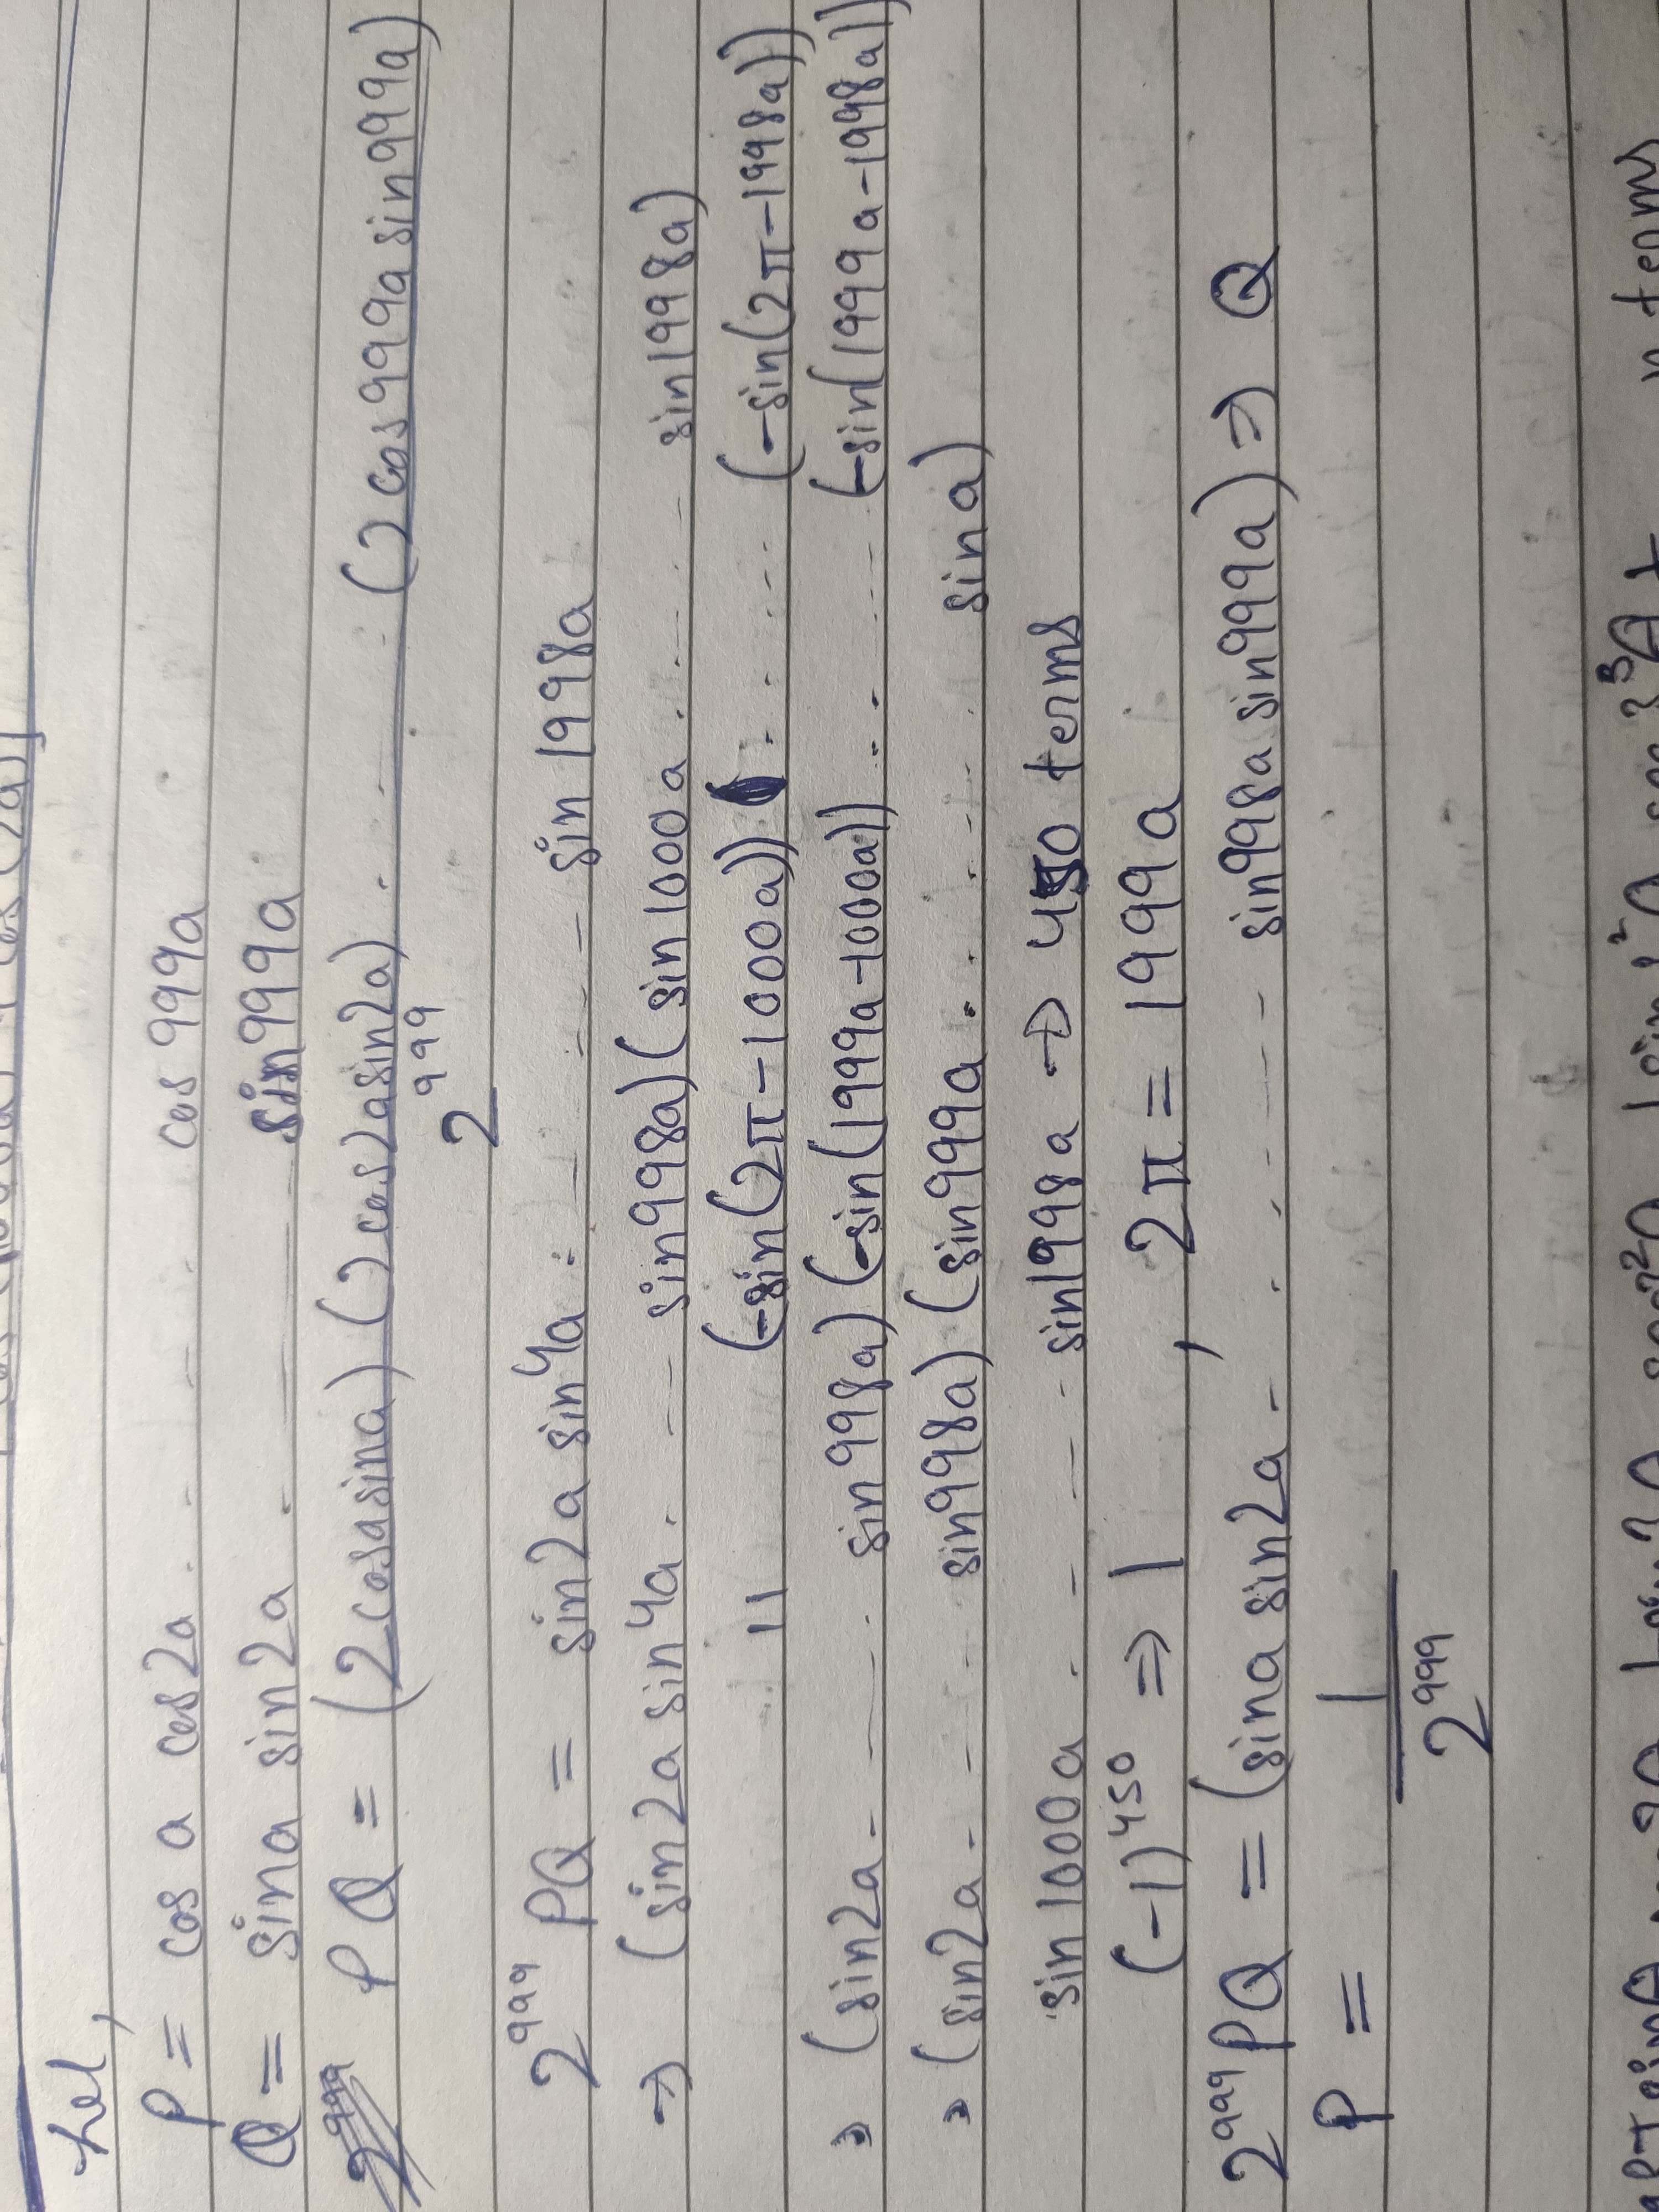 Let,
P = cos a cos 2a . . - - . . cos 999a
Q = sina sin2a . - - - sin999a
PQ = (2cosasina) (2cos2asin2a) . - - - - (2cos999a sin999a)
2^999
2^999 PQ = sin2a sin4a . . - - - - - sin 1998a
→ (sin2a sin4a . - - - sin998a) (sin1000a . . - . - sin1998a)
" (-sin(2π-1000a)) . . . - . . (-sin(2π-1998a))
⇒ (sin2a - - - . sin998a) (-sin(1999a-1000a)) . . - . . (-sin(1999a-1998a))
⇒ (sin2a - - - sin998a) (sin999a . . . - - . sina)
sin1000a . - - - sin1998a → 450 terms
(-1)^450 ⇒ 1 , 2π = 1999a
2^999 PQ = (sina sin2a - - . . - - - sin998a sin999a) ⇒ Q
P = 1
2^999
n terms